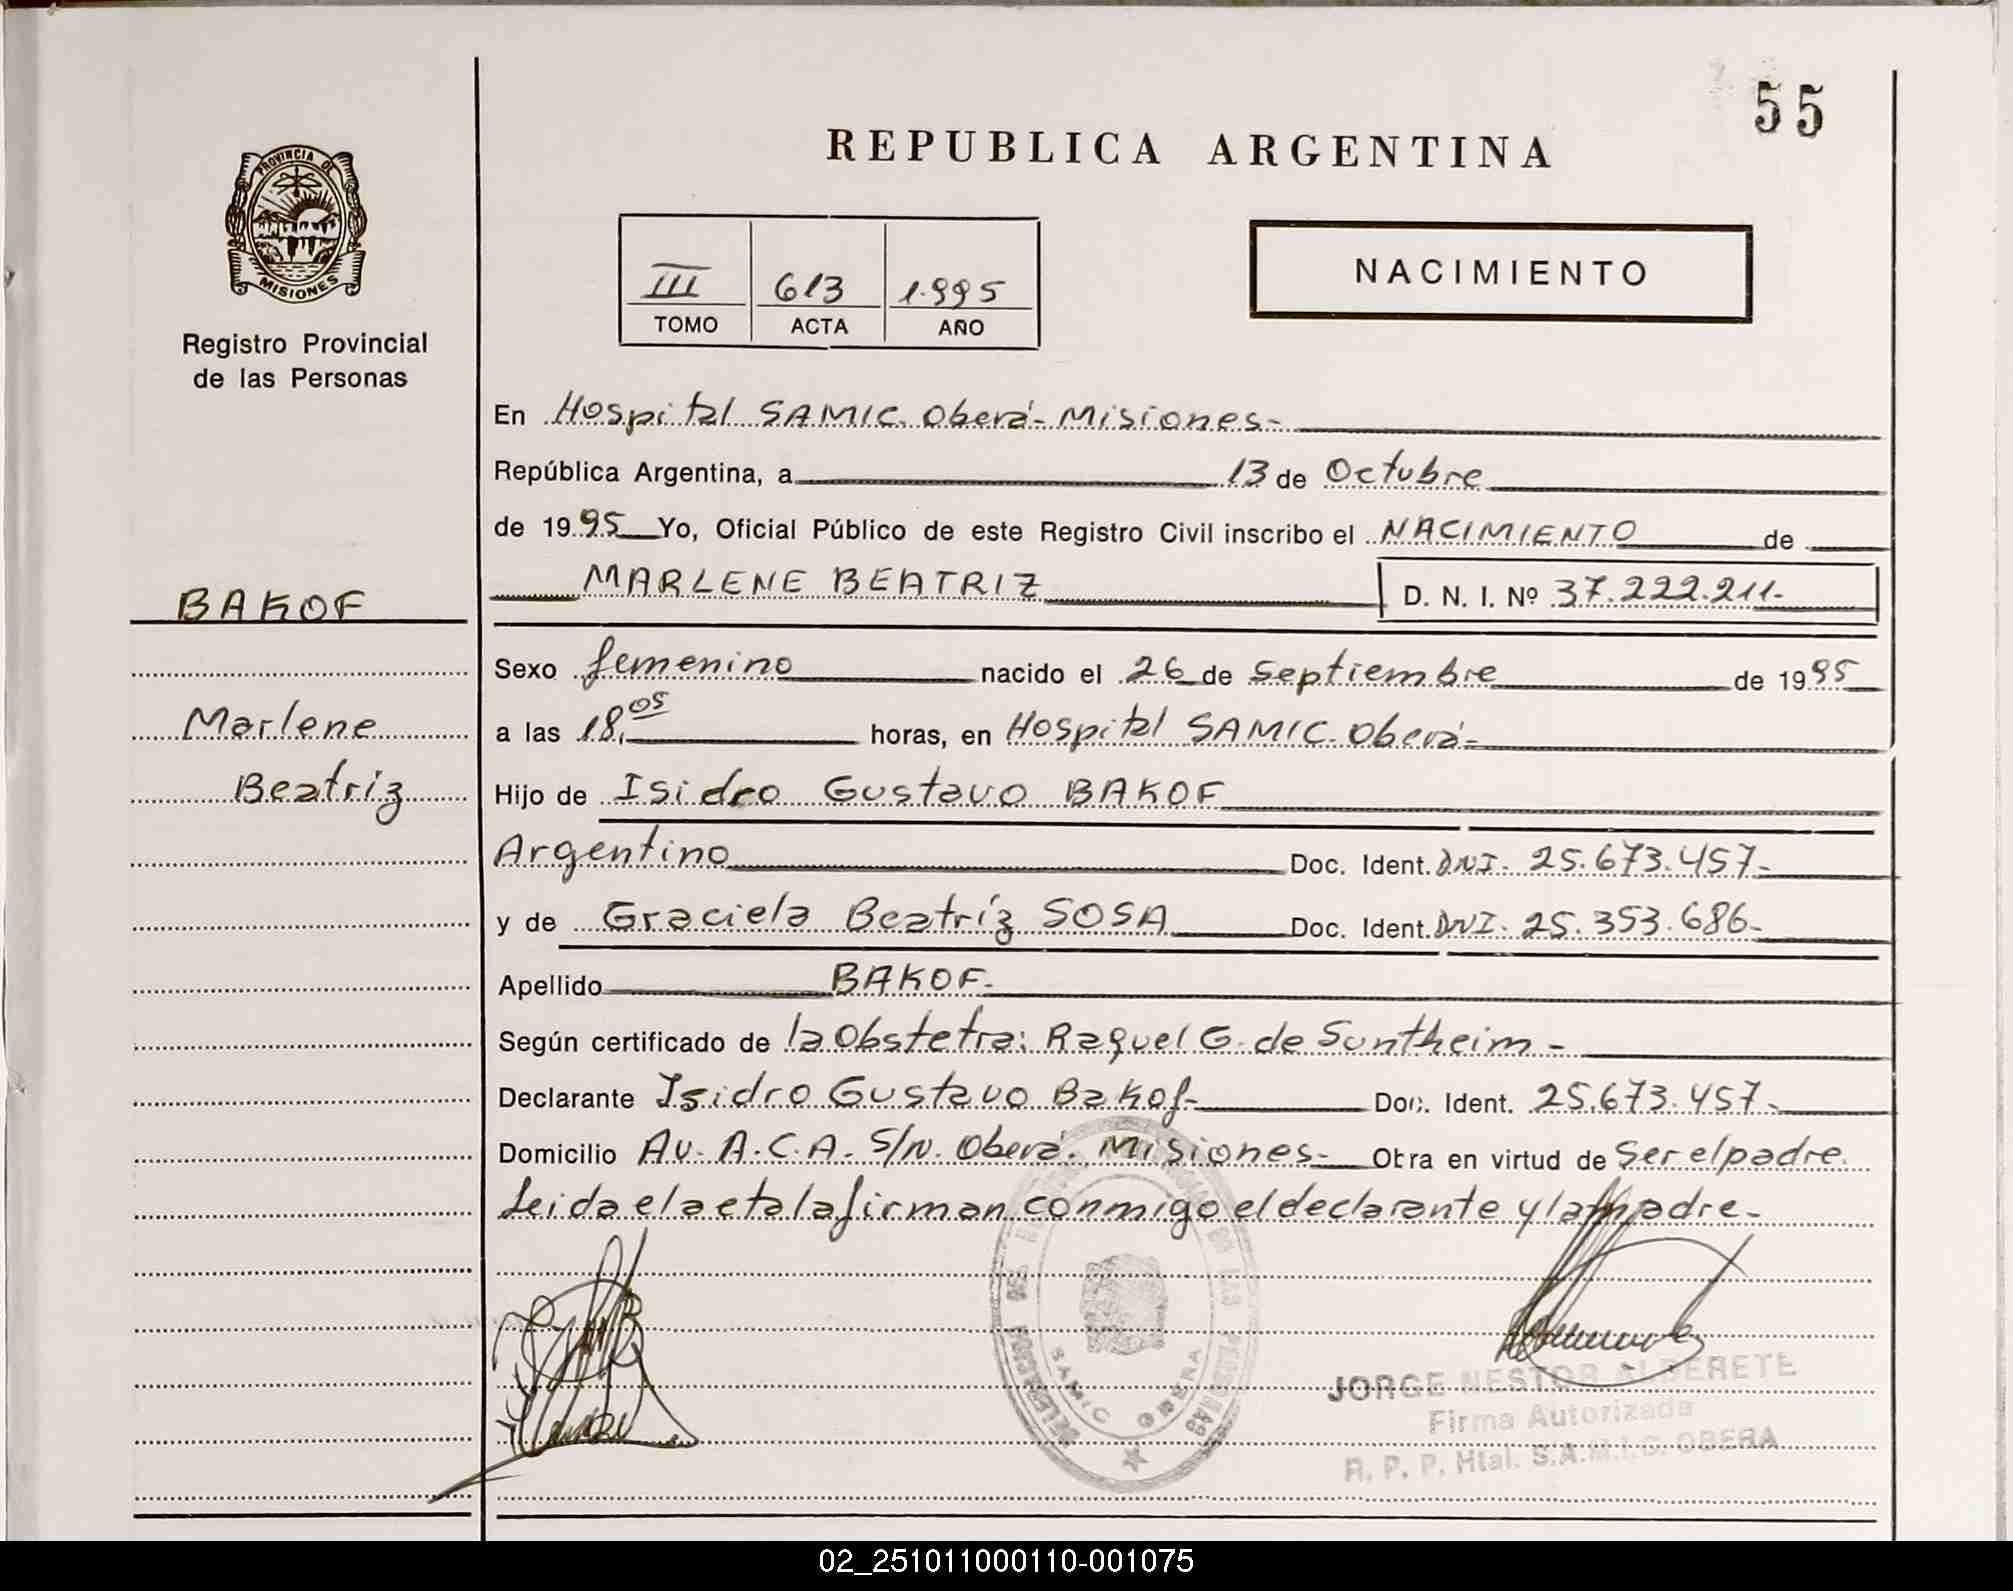 55
REPUBLICA ARGENTINA
PROVINCIA DE
MISIONES
Registro Provincial
de las Personas
III 613 1.995
TOMO ACTA AÑO
NACIMIENTO
En Hospital SAMIC. Oberá- Misiones-
República Argentina, a 13 de Octubre
de 1995 Yo, Oficial Público de este Registro Civil inscribo el NACIMIENTO de
MARLENE BEATRIZ D. N. I. Nº 37.222.211-
BAKOF
Marlene
Beatriz
Sexo femenino nacido el 26 de Septiembre de 1995
a las 18,05 horas, en Hospital SAMIC. Oberá-
Hijo de Isidro Gustavo BAKOF
Argentino Doc. Ident. DNI- 25.673.457-
y de Graciela Beatríz SOSA Doc. Ident. DNI- 25.353.686-
Apellido BAKOF-
Según certificado de la Obstetra: Raquel G. de Suntheim-
Declarante Isidro Gustavo Bakof- Doc. Ident. 25.673.457-
Domicilio Av. A.C.A. S/N. Oberá. Misiones- Obra en virtud de Ser el padre.
Leida el acta la firman conmigo el declarante y la madre-
DE LAS PERSONAS
SAMIC OBERA
JORGE NESTOR ALDERETE
Firma Autorizada
R. P. P. Htal. S.A.M.I.C. OBERA
02_251011000110-001075